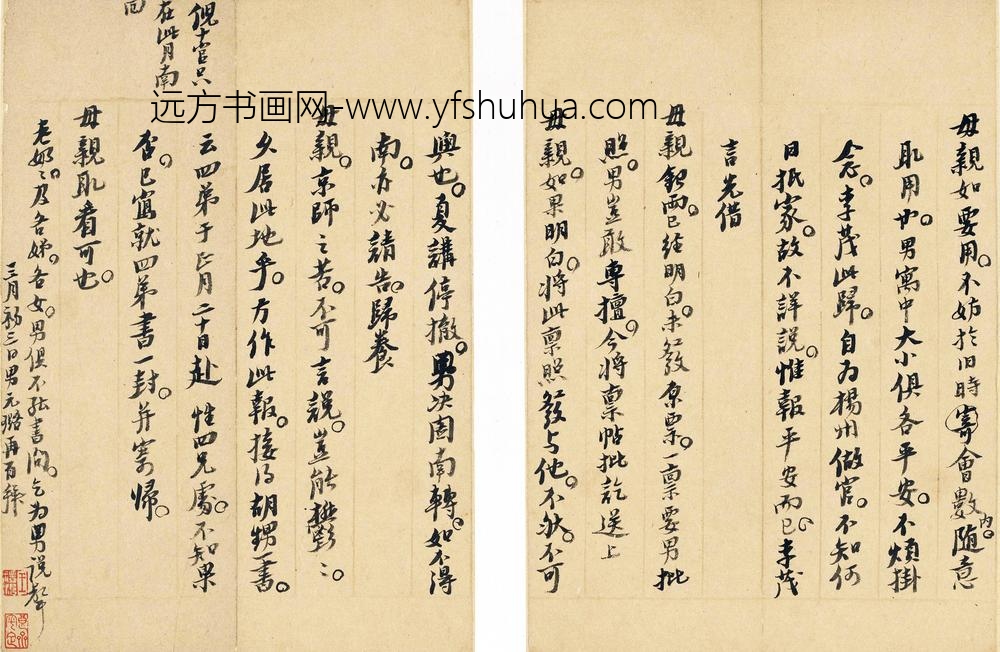 母親如要用。不妨於旧時寄會數内。随意
取用也。男寓中大小俱各平安。不煩掛
念。李茂此歸。自为楊州做官。不知何
日抵家。故不詳說。惟報平安而已。李茂
言先借
母親銀両。已経明白。未發原票。一票要男批
照。男豈敢専擅。今将票帖批訖送上
母親。如果明白。将此票照發与他。不狀。不可
與也。夏講停撤。男决图南轉。如不得
南。亦必請告。歸養
母親。京師之苦。不可言説。豈能欝欝
久居此地乎。方作此報。接得胡甥一書。
云四弟于正月二十日赴 性四兄處。不知果
否。已寫就四弟書一封。并寄歸。
母親取看可也。
老娘娘及各娣。各女。男俱不能書問。乞为男説聲
三月初三日男元璐再百拜
倪十官只
在此月南
回
远方书画网-www.yfshuhua.com